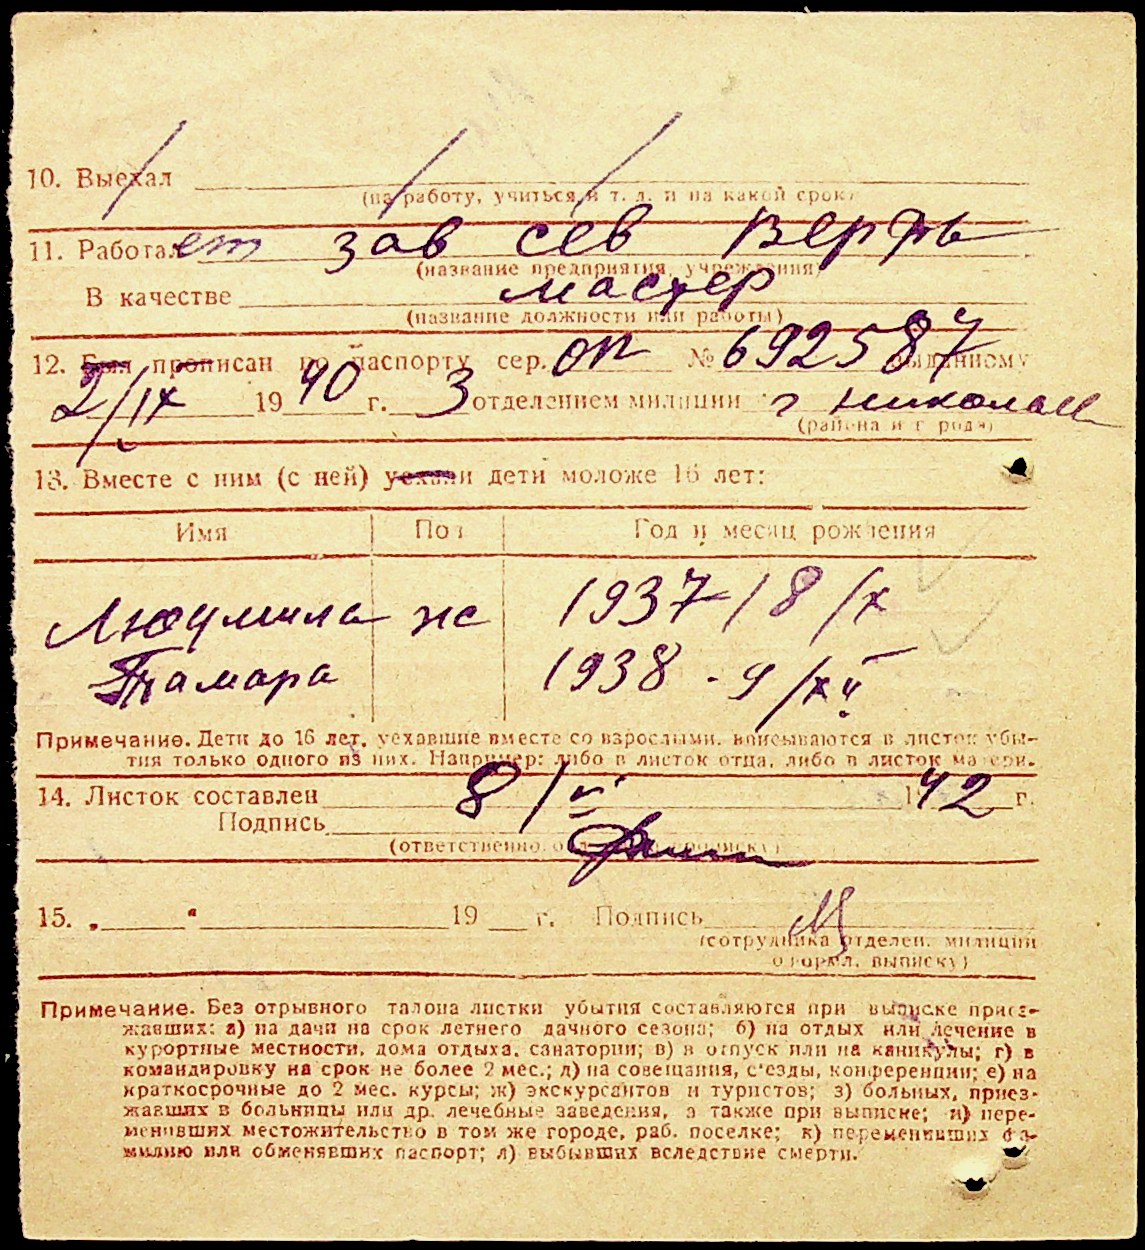 10. Выехал
(на работу, учиться и т. д. и на какой срок)
11. Работает зав сев Верфь
(название предприятия, учреждения)
В качестве мастер
(название должности или работы)
12. Был прописан по паспорту сер. ОП № 692587 выданному
2/IX 1940 г. 3 отделением милиции г Николаев
(района и города)
13. Вместе с ним (с ней) уехали дети моложе 16 лет:
Имя Пол Год и месяц рождения
Людмила ж 1937 / 8/X
Тамара 1938 - 9/XII
Примечание. Дети до 16 лет, уехавшие вместе со взрослыми, вписываются в листок убы-
тия только одного из них. Например: либо в листок отца, либо в листок матери.
14. Листок составлен 8/V 1942 г.
Подпись
(ответственно прописку)
15. „ “ 19 г. Подпись
(сотрудника отделен. милиции
оформл. выписку)
Примечание. Без отрывного талона листки убытия составляются при выписке приез-
жавших: а) на дачи на срок летнего дачного сезона; б) на отдых или лечение в
курортные местности, дома отдыха, санатории; в) в отпуск или на каникулы; г) в
командировку на срок не более 2 мес.; д) на совещания, с'езды, конференции; е) на
краткосрочные до 2 мес. курсы; ж) экскурсантов и туристов; з) больных, приез-
жавших в больницы или др. лечебные заведения, а также при выписке; и) пере-
менивших местожительство в том же городе, раб. поселке; к) переменивших фа-
милию или обменявших паспорт; л) выбывших вследствие смерти.